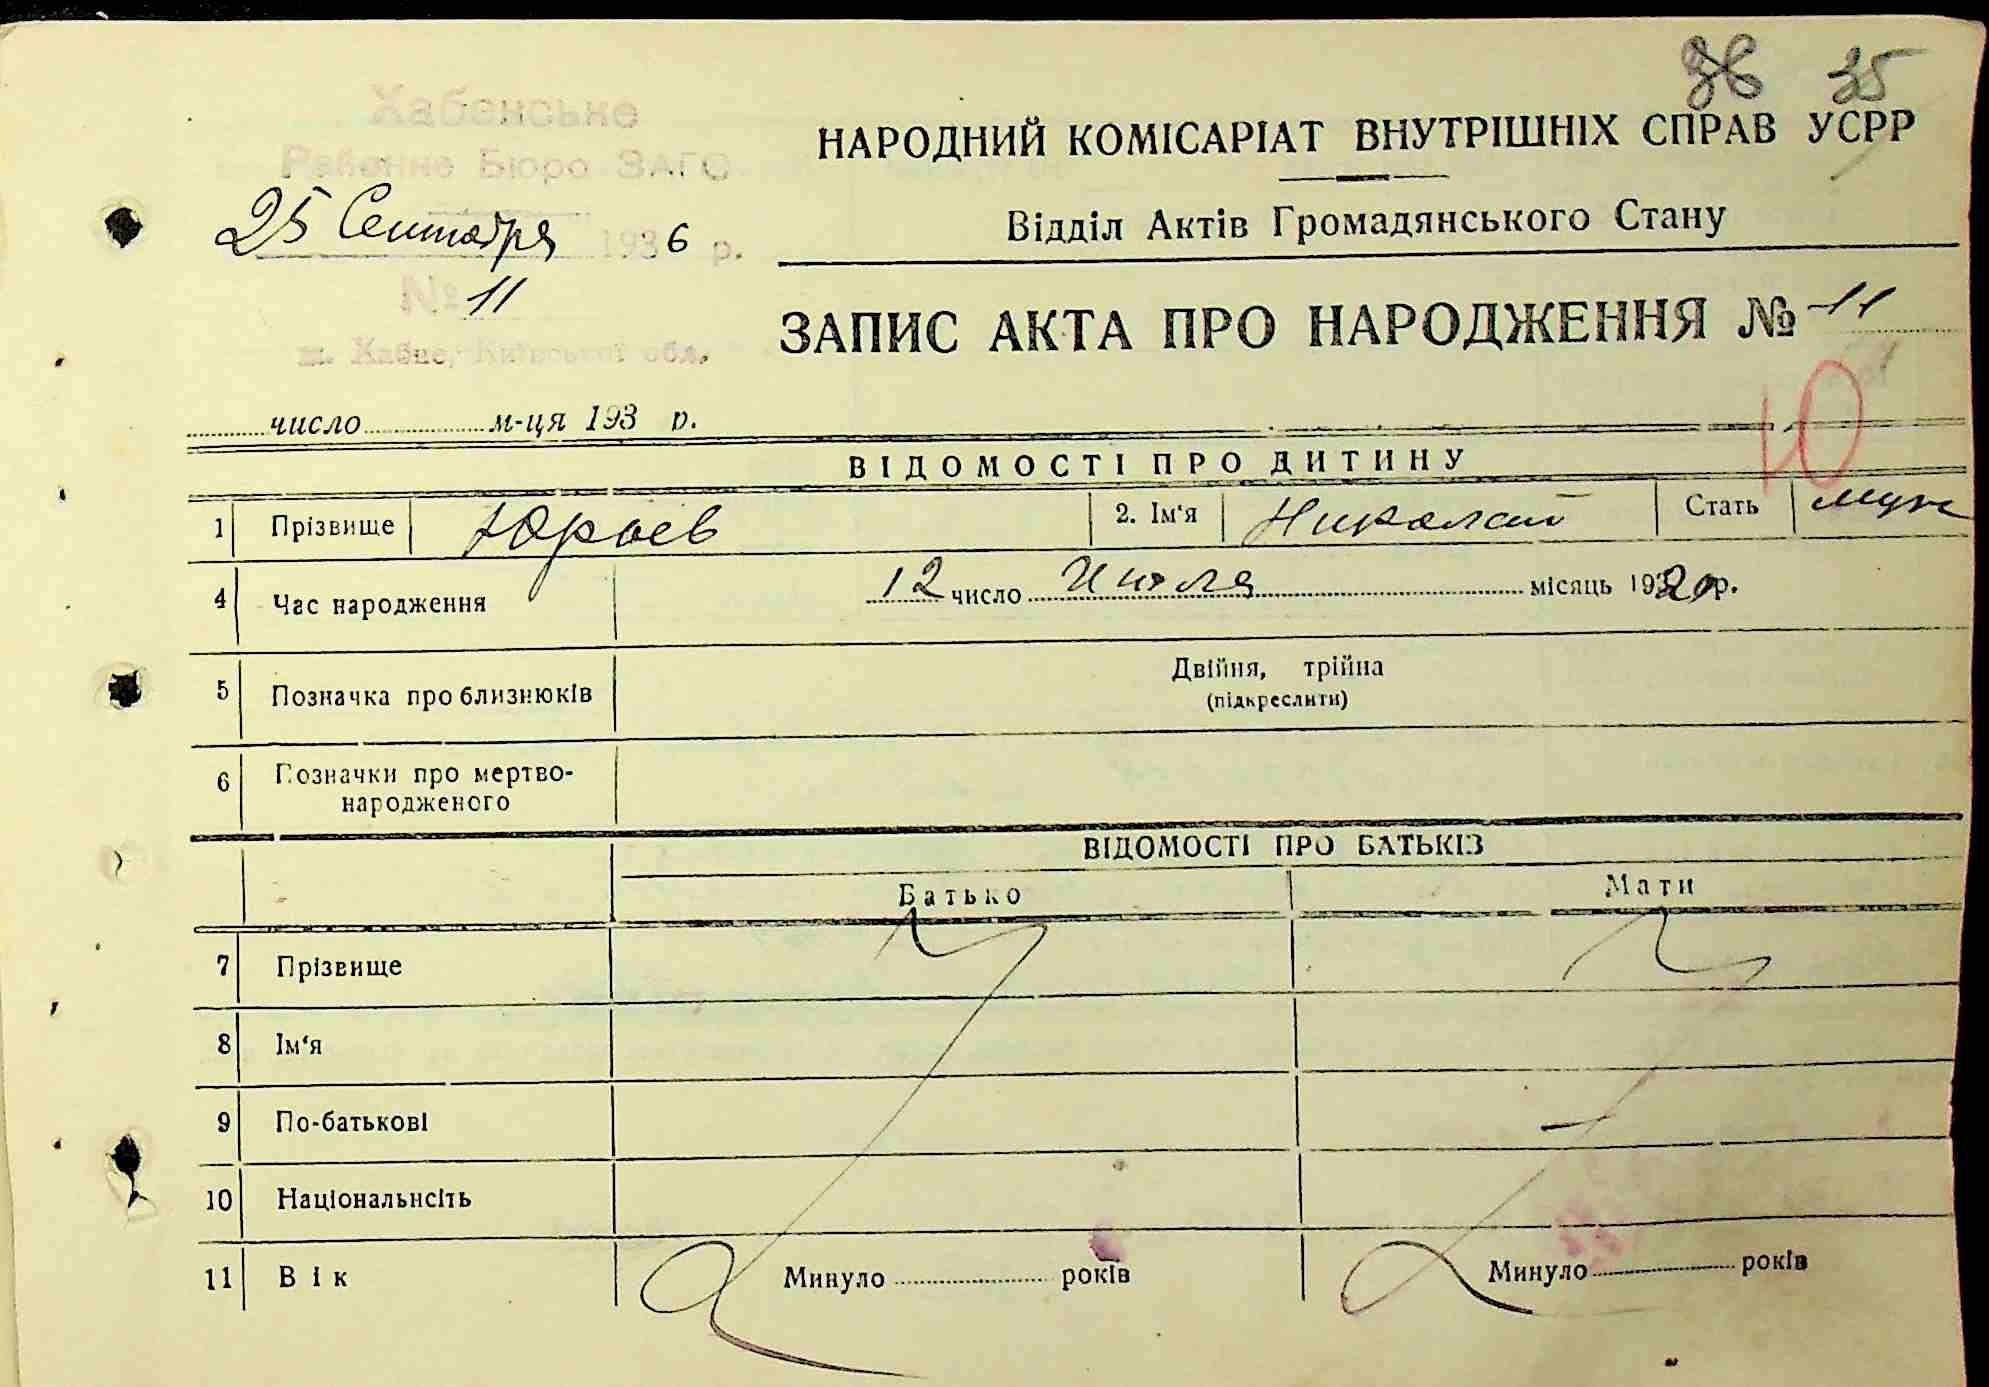 36 35
Хабенське
Районне Бюро ЗАГС
25 Сентября 1936 р.
№ 11
м. Хабне, Київської обл.
НАРОДНИЙ КОМІСАРІАТ ВНУТРІШНІХ СПРАВ УСРР
Відділ Актів Громадянського Стану
ЗАПИС АКТА ПРО НАРОДЖЕННЯ № 11
число м-ця 193 р.
Ю
ВІДОМОСТІ ПРО ДИТИНУ
1 Прізвище Юрьев 2. Ім'я Николай Стать муж
4 Час народження 12 число Июля місяць 1920 р.
5 Позначка про близнюків Двійня, трійна
(підкреслити)
6 Позначки про мертво-
народженого
ВІДОМОСТІ ПРО БАТЬКІВ
Батько Мати
7 Прізвище
8 Ім'я
9 По-батькові
10 Національнсіть
11 Вік Минуло років Минуло років